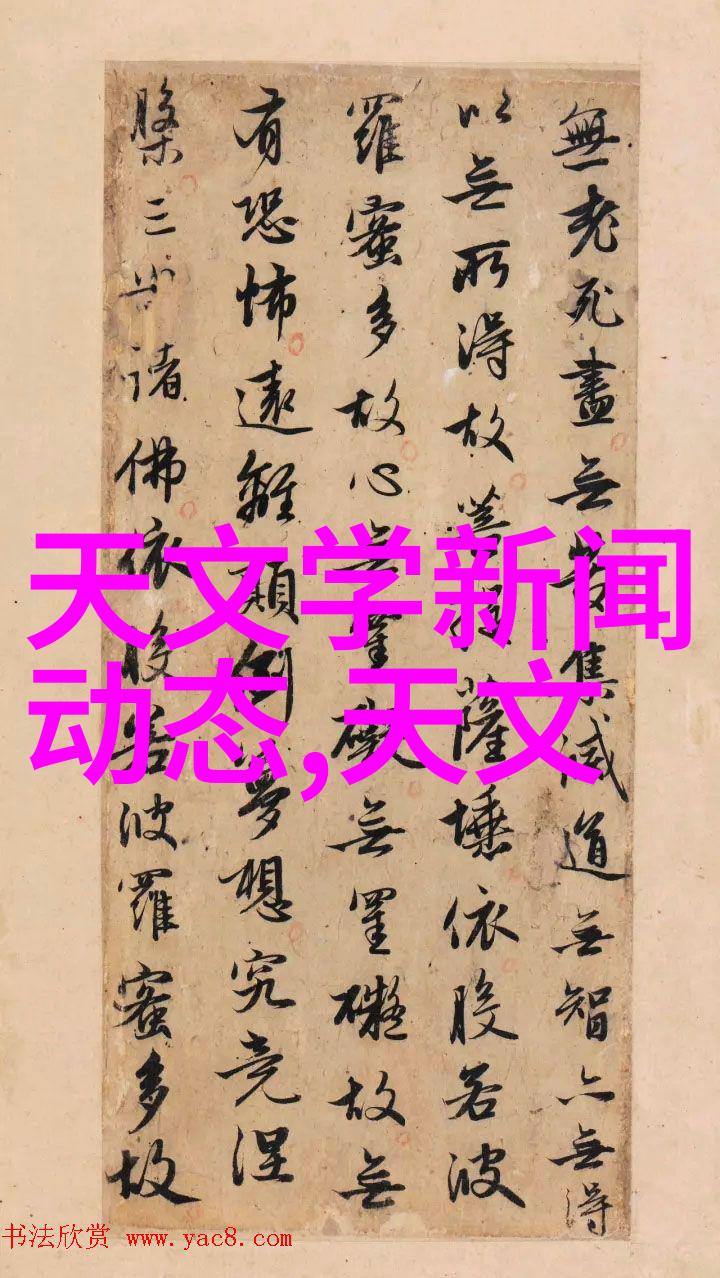 無老死盡無苦集滅道無智亦無得
以無所得故菩提薩埵依般若波
羅蜜多故心無罣礙無罣礙故無
有恐怖遠離顛倒夢想究竟涅
槃三世諸佛依般若波羅蜜多故
天文学新闻
动态,天文
书法欣赏 www.yac8.com